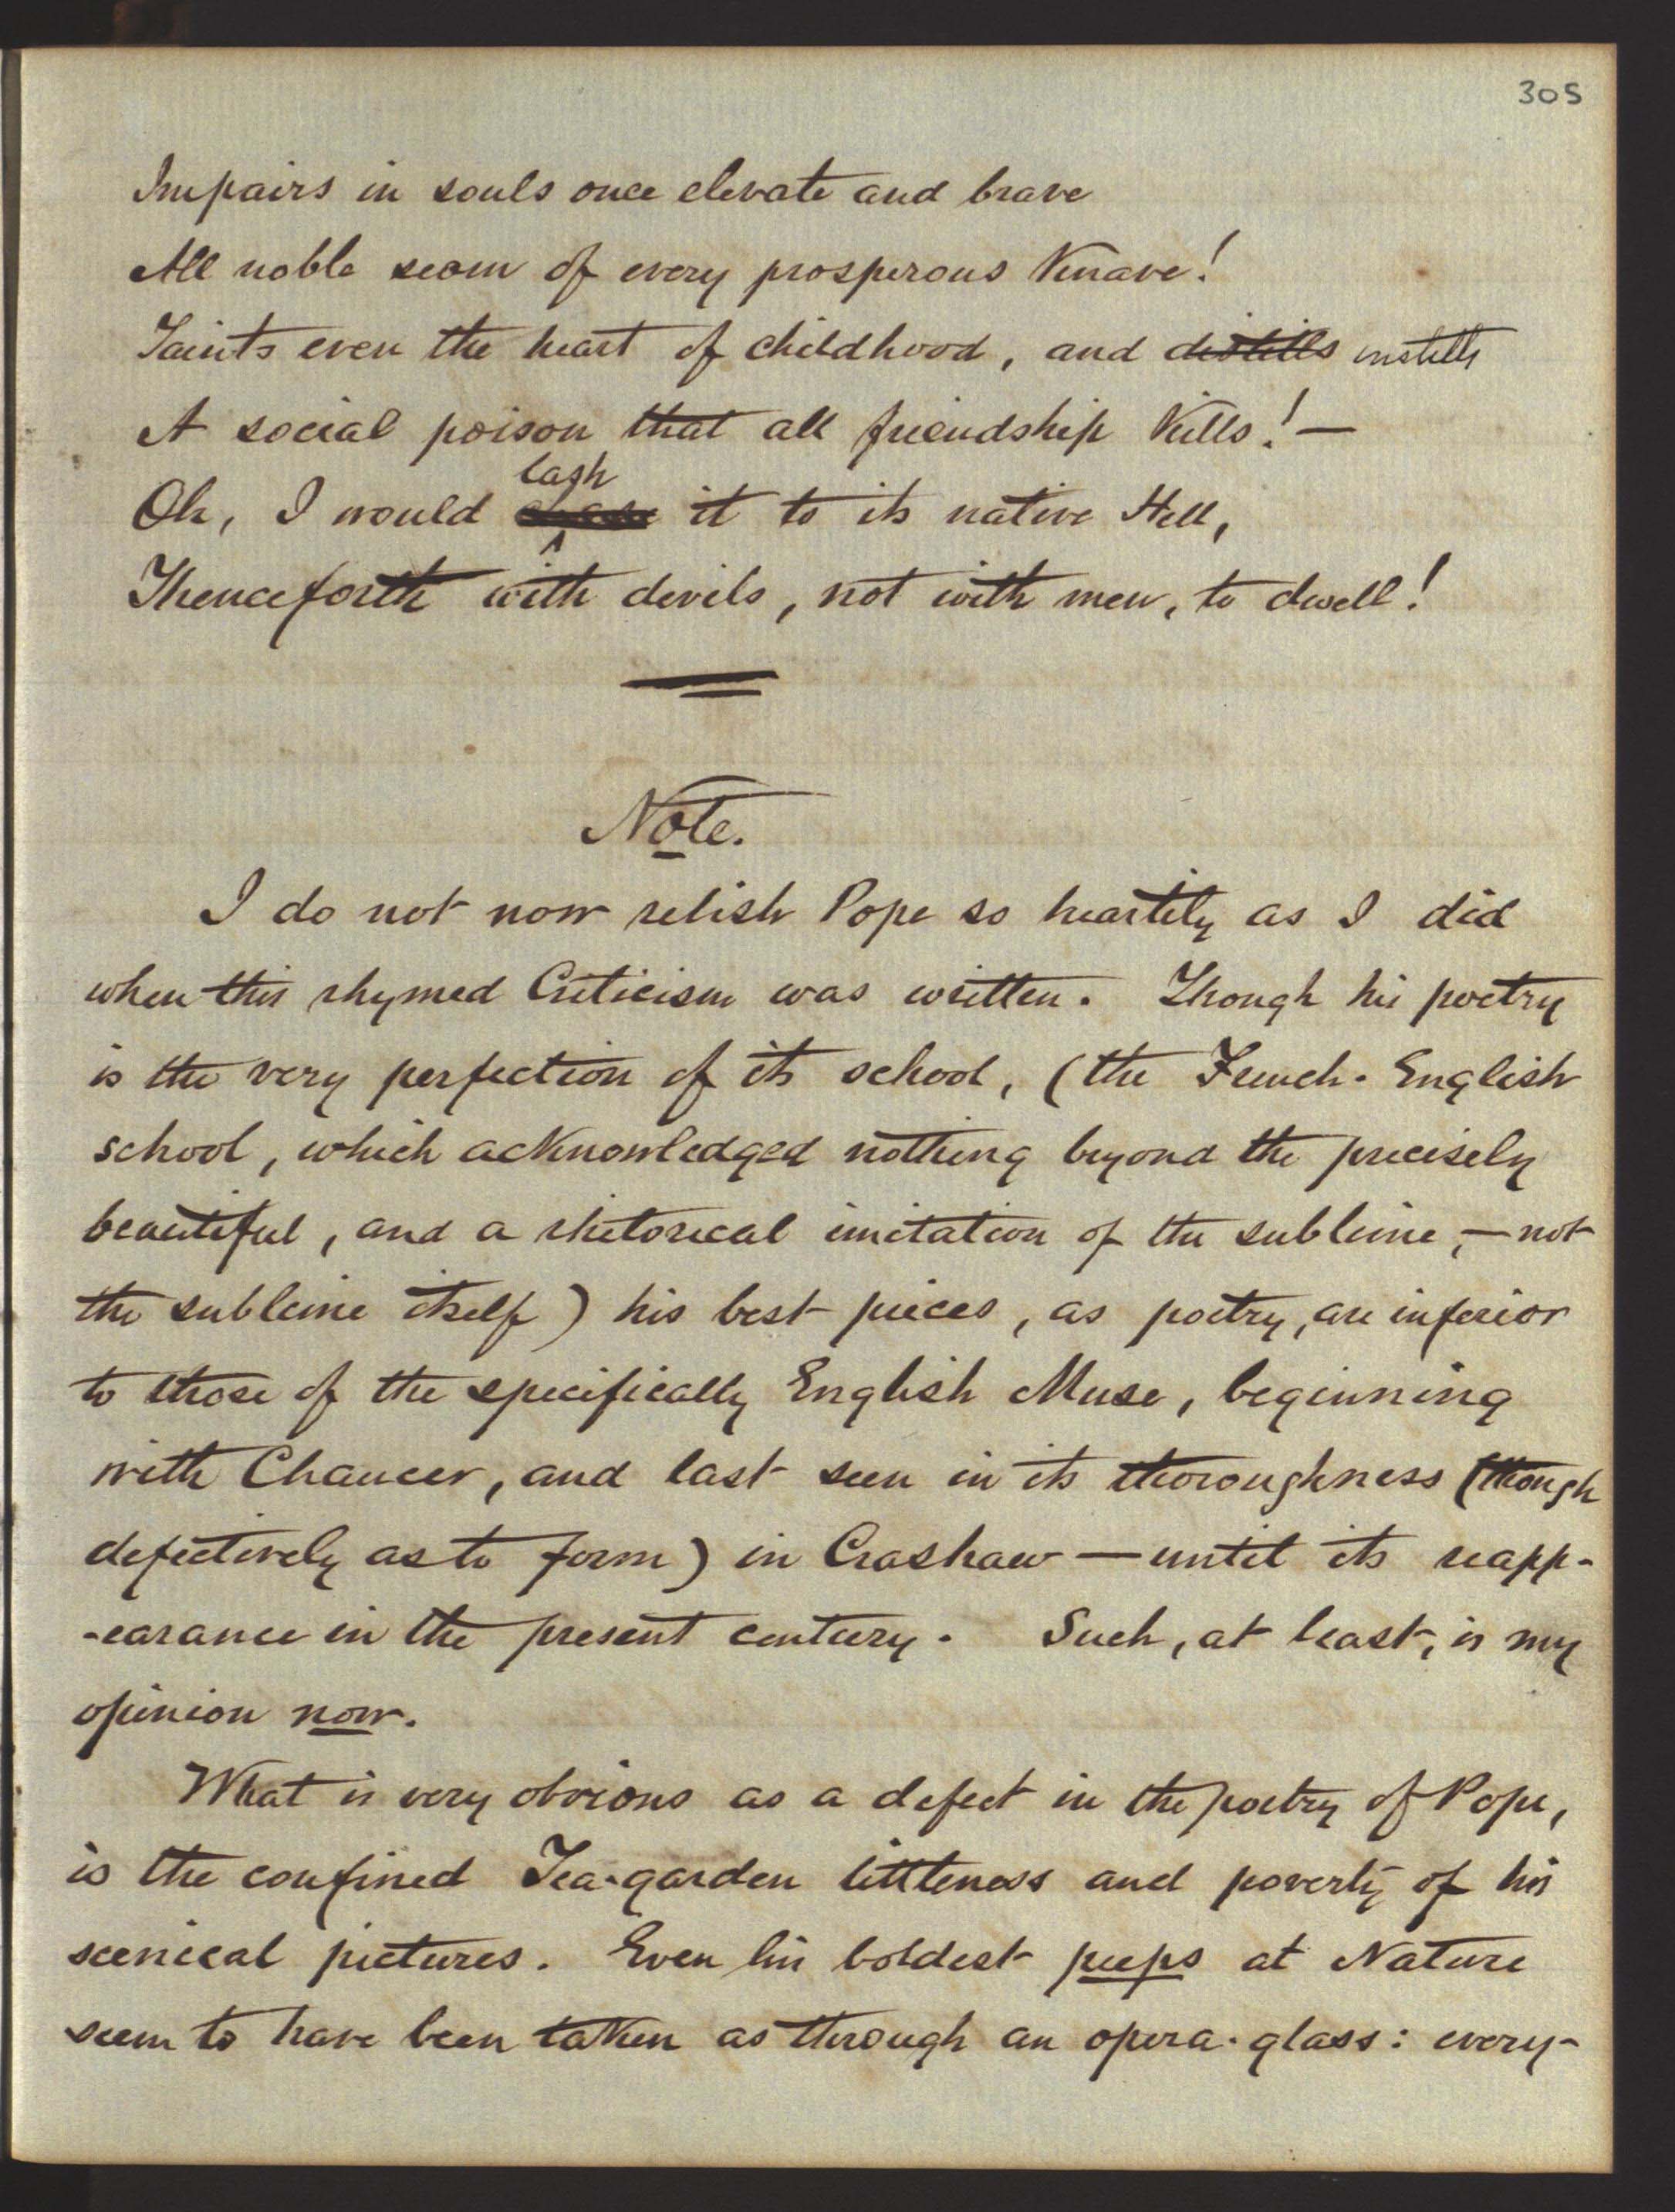 305
Impairs in souls once elevate and brave
All noble scorn of every prosperous Knave!
Taints even the heart of childhood, and distills instills
A social poison that all friendship kills! —
lash
Oh, I would chase it to its native Hell,
Thenceforth with devils, not with men, to dwell!
Note.
I do not now relish Pope so heartily as I did
when this rhymed Criticism was written. Though his poetry
is the very perfection of its school, (the French-English
school, which acknowledged nothing beyond the precisely
beautiful, and a rhetorical imitation of the sublime, — not
the sublime itself) his best pieces, as poetry, are inferior
to those of the specifically English Muse, beginning
with Chaucer, and last seen in its thoroughness (though
defectively as to form) in Crashaw — until its reapp-
-earance in the present century. Such, at least, is my
opinion now.
What is very obvious as a defect in the poetry of Pope,
is the confined Tea-garden littleness and poverty of his
scenical pictures. Even his boldest peeps at Nature
seem to have been taken as through an opera-glass: every-